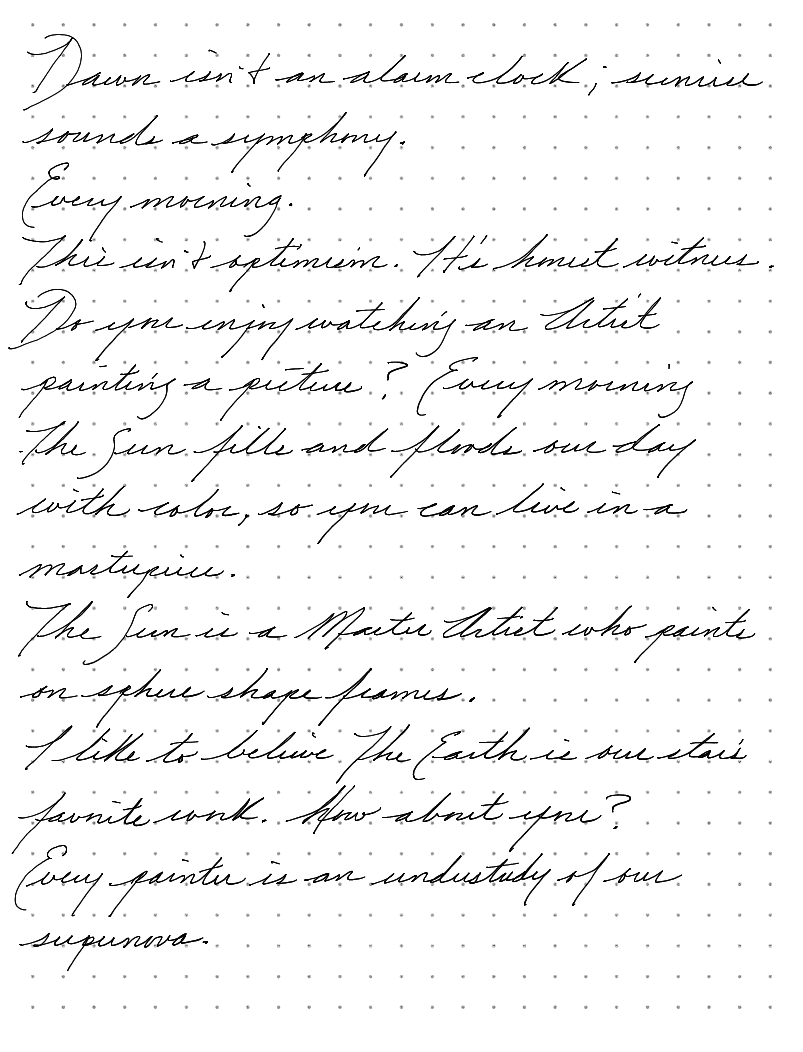 Dawn isn't an alarm clock; sunrise
sounds a symphony.
Every morning.
This isn't optimism. It's honest witness.
Do you enjoy watching an Artist
painting a picture? Every morning
The Sun fills and floods our day
with color, so you can live in a
masterpiece.
The Sun is a Master Artist who paints
on sphere shape frames.
I like to believe The Earth is our star's
favorite work. How about you?
Every painter is an understudy of our
supernova.